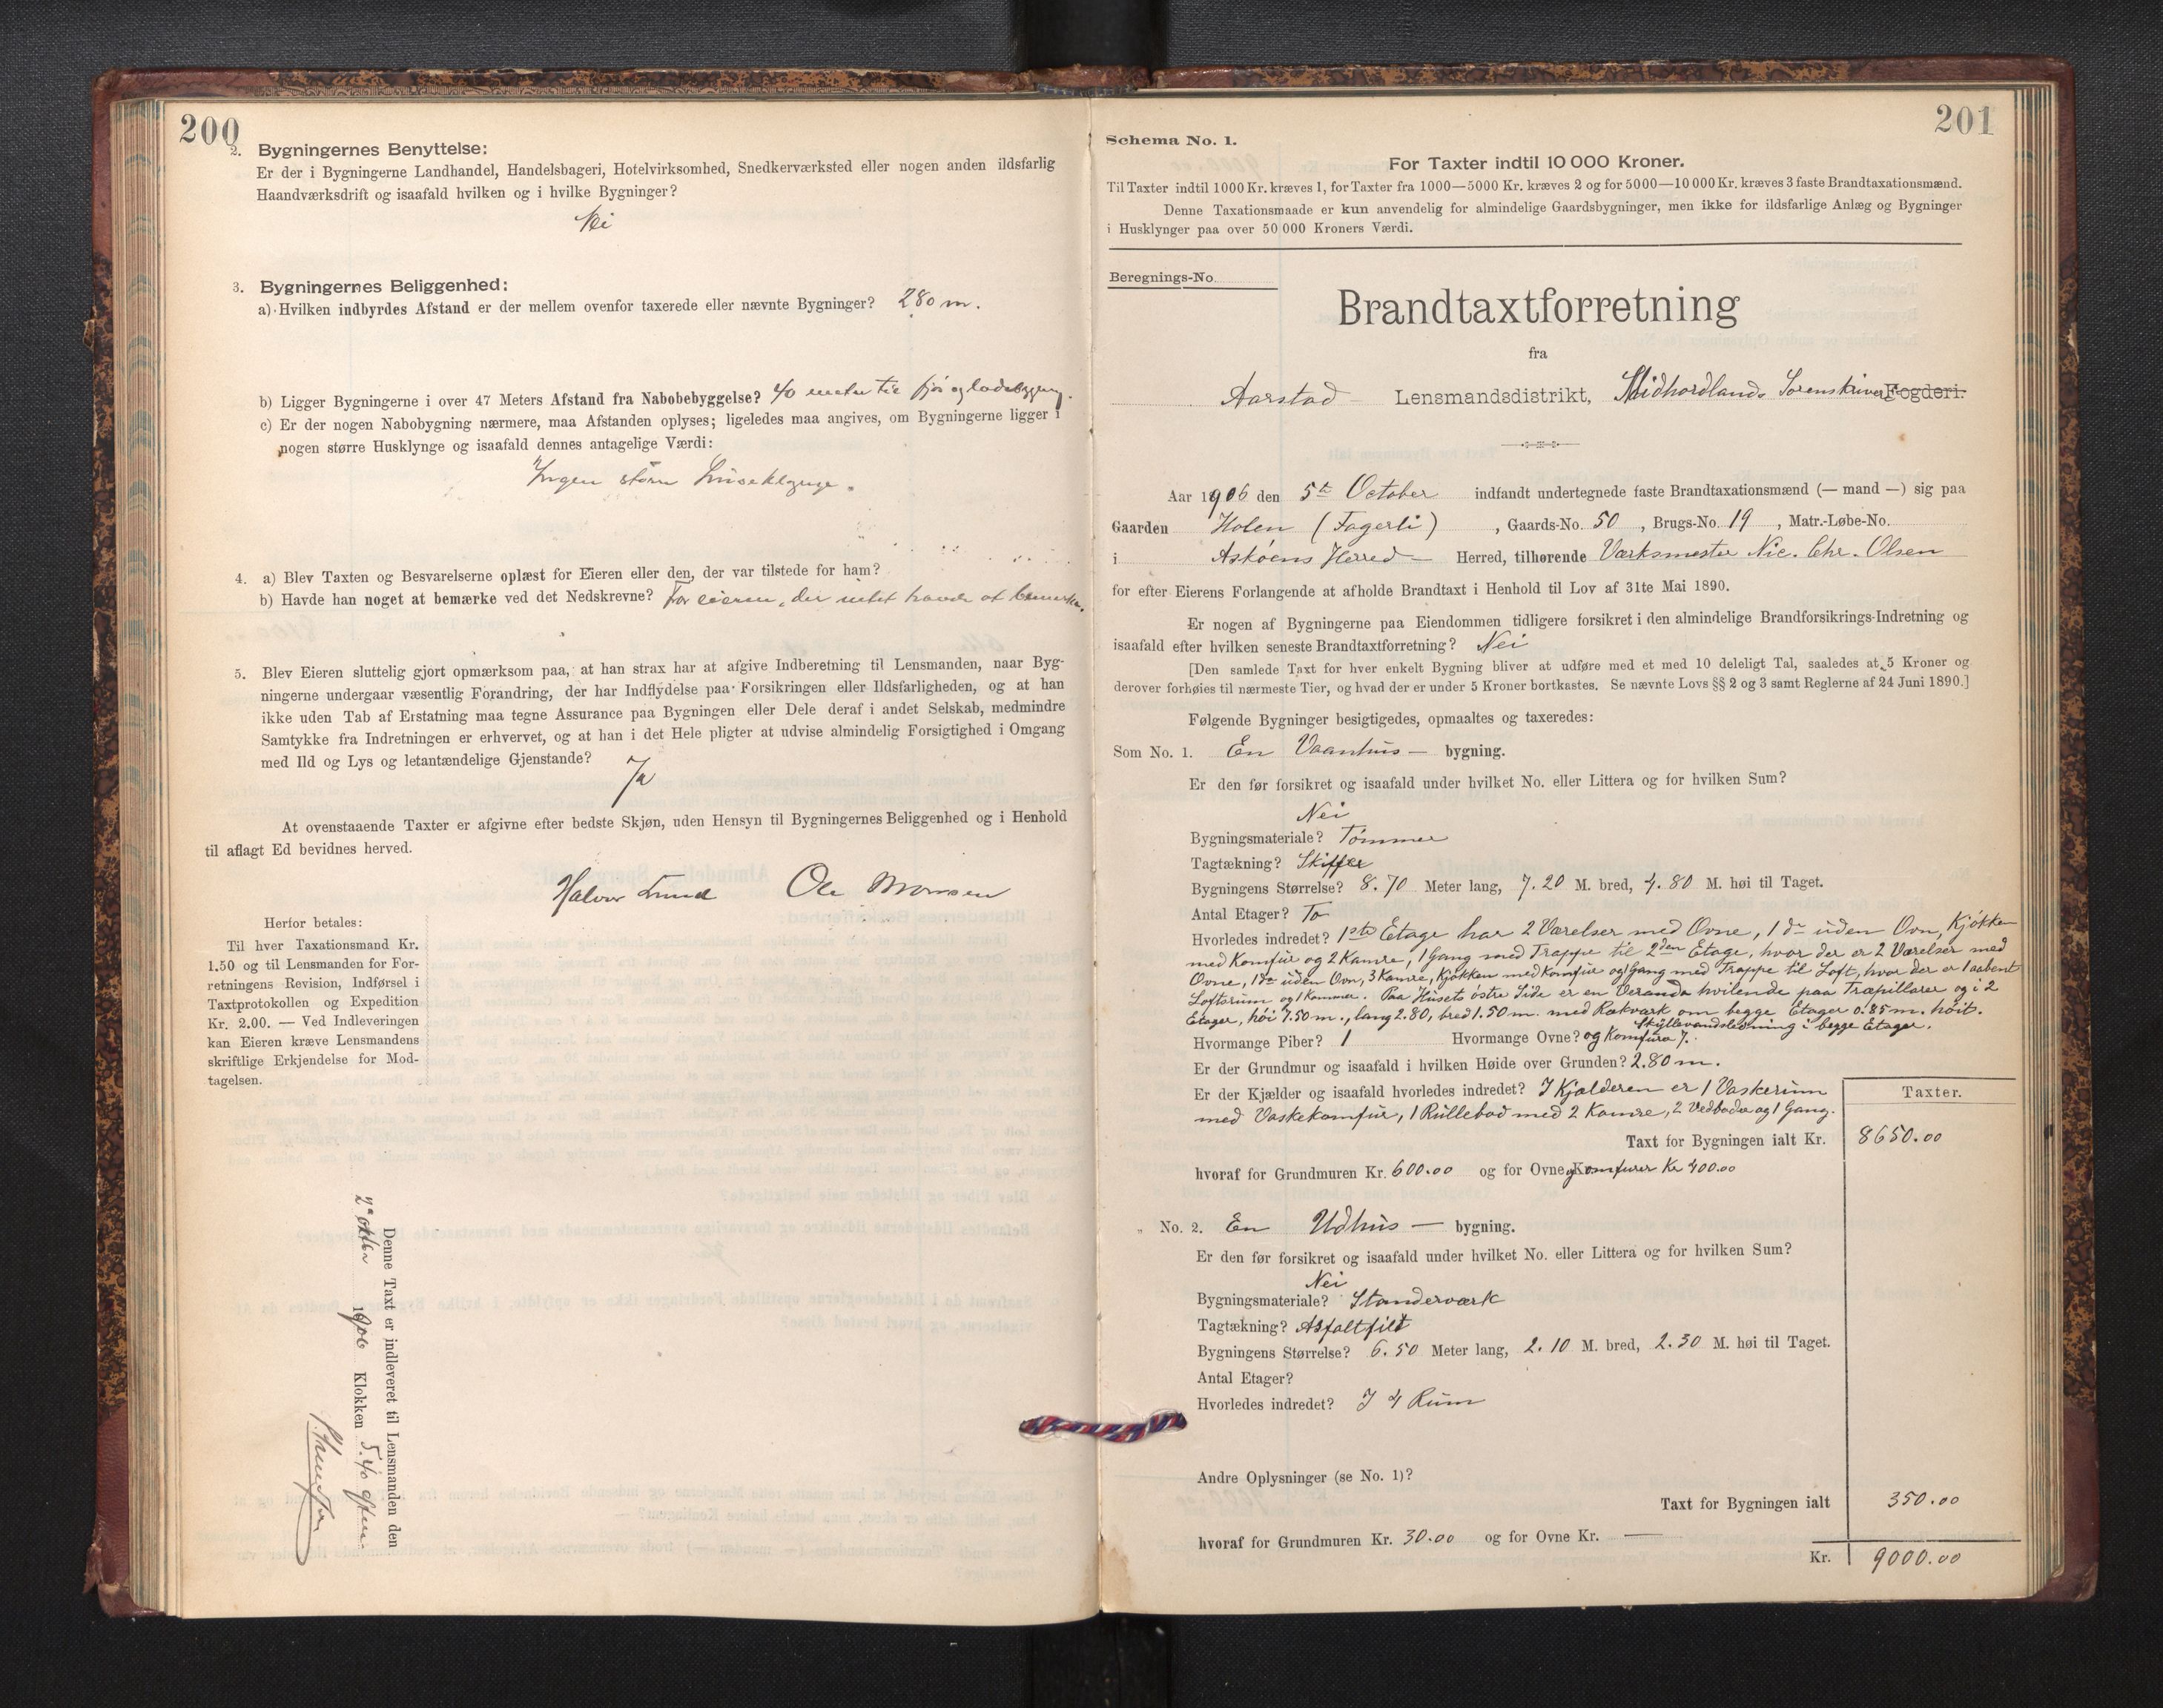 200
2. Bygningernes Benyttelse:
Er der i Bygningerne Landhandel, Handelsbageri, Hotelvirksomhed, Snedkerværksted eller nogen anden ildsfarlig
Haandværksdrift og isaafald hvilken og i hvilke Bygninger?
Nei
3. Bygningernes Beliggenhed:
a) Hvilken indbyrdes Afstand er der mellem ovenfor taxerede eller nævnte Bygninger? 280 m.
b) Ligger Bygningerne i over 47 Meters Afstand fra Nabobebyggelse? 40 meter til fjøs og ladebygning.
c) Er der nogen Nabobygning nærmere, maa Afstanden oplyses; ligeledes maa angives, om Bygningerne ligger i
nogen større Husklynge og isaafald dennes antagelige Værdi:
Ingen større Huseklynge.
4. a) Blev Taxten og Besvarelserne oplæst for Eieren eller den, der var tilstede for ham?
b) Havde han noget at bemærke ved det Nedskrevne? For eieren, der intet havde at bemærke.
5. Blev Eieren sluttelig gjort opmærksom paa, at han strax har at afgive Indberetning til Lensmanden, naar Byg-
ningerne undergaar væsentlig Forandring, der har Indflydelse paa Forsikringen eller Ildsfarligheden, og at han
ikke uden Tab af Erstatning maa tegne Assurance paa Bygningen eller Dele deraf i andet Selskab, medmindre
Samtykke fra Indretningen er erhvervet, og at han i det Hele pligter at udvise almindelig Forsigtighed i Omgang
med Ild og Lys og letantændelige Gjenstande?
Ja
At ovenstaaende Taxter er afgivne efter bedste Skjøn, uden Hensyn til Bygningernes Beliggenhed og i Henhold
til aflagt Ed bevidnes herved.
Halvor Lund Ole Monsen
Herfor betales:
Til hver Taxationsmand Kr.
1.50 og til Lensmanden for For-
retningens Revision, Indførsel i
Taxtprotokollen og Expedition
Kr. 2.00. — Ved Indleveringen
kan Eieren kræve Lensmandens
skriftlige Erkjendelse for Mod-
tagelsen.
Denne Taxt er indleveret til Lensmanden den
1906 Klokken 5.40 efterm.
201
Schema No. 1.
For Taxter indtil 10 000 Kroner.
Til Taxter indtil 1000 Kr. kræves 1, for Taxter fra 1000—5000 Kr. kræves 2 og for 5000—10 000 Kr. kræves 3 faste Brandtaxationsmænd.
Denne Taxationsmaade er kun anvendelig for almindelige Gaardsbygninger, men ikke for ildsfarlige Anlæg og Bygninger
i Husklynger paa over 50 000 Kroners Værdi.
Beregnings-No.
Brandtaxtforretning
fra
Aarstad Lensmandsdistrikt, Midhordlands Sorenskriveri Fogderi.
Aar 1906 den 5te October indfandt undertegnede faste Brandtaxationsmænd (— mand —) sig paa
Gaarden Holen (Fagerli), Gaards-No. 50, Brugs-No. 19, Matr.-Løbe-No.
i Askøens Herred Herred, tilhørende Værksmester Nic. Chr. Olsen
for efter Eierens Forlangende at afholde Brandtaxt i Henhold til Lov af 31te Mai 1890.
Er nogen af Bygningerne paa Eiendommen tidligere forsikret i den almindelige Brandforsikrings-Indretning og
isaafald efter hvilken seneste Brandtaxtforretning? Nei
[Den samlede Taxt for hver enkelt Bygning bliver at udføre med et med 10 deleligt Tal, saaledes at 5 Kroner og
derover forhøies til nærmeste Tier, og hvad der er under 5 Kroner bortkastes. Se nævnte Lovs §§ 2 og 3 samt Reglerne af 24 Juni 1890.]
Følgende Bygninger besigtigedes, opmaaltes og taxeredes:
Som No. 1. En Vaanhus — bygning.
Er den før forsikret og isaafald under hvilket No. eller Littera og for hvilken Sum?
Nei
Bygningsmateriale? Tømmer
Tagtækning? Skiffer
Bygningens Størrelse? 8.70 Meter lang, 7.20 M. bred, 4.80 M. høi til Taget.
Antal Etager? To
Hvorledes indredet? 1ste Etage har 2 Værelser med Ovne, 1 do uden Ovn, Kjøkken
med Komfur og 2 Kamre, 1 Gang med Trappe til 2den Etage, hvor der er 2 Værelser med
Ovne, 1 do uden Ovn, 3 Kamre, Kjøkken med Komfur og 1 Gang med Trappe til Loft, hvor der er 1 aabent
Loftsrum og 1 Kammer. Paa Husets østre Side er en Veranda hvilende paa Træpillarer og i 2
Etager, høi 7.50 m., lang 2.80, bred 1.50 m. med Rækværk om begge Etager 0.85 m. høit.
Skyllevandsledning i begge Etager.
Hvormange Piber? 1 Hvormange Ovne? og Komfurer 7.
Er der Grundmur og isaafald i hvilken Høide over Grunden? 2.80 m.
Er der Kjælder og isaafald hvorledes indredet? I Kjælderen er 1 Vaskerum
med Vaskekomfur, 1 Rullebod med 2 Kamre, 2 Vedboder og 1 Gang.
Taxter.
Taxt for Bygningen ialt Kr. 8650.00
hvoraf for Grundmuren Kr. 600.00 og for Ovne og Komfurer Kr 400.00
" No. 2. En Udhus — bygning.
Er den før forsikret og isaafald under hvilket No. eller Littera og for hvilken Sum?
Nei
Bygningsmateriale? Standerværk
Tagtækning? Asfaltfilt
Bygningens Størrelse? 6.50 Meter lang, 2.10 M. bred, 2.30 M. høi til Taget.
Antal Etager?
Hvorledes indredet? I 4 Rum
Andre Oplysninger (se No. 1)?
Taxt for Bygningen ialt 350.00
hvoraf for Grundmuren Kr. 30.00 og for Ovne Kr. —
Kr. 9000.00